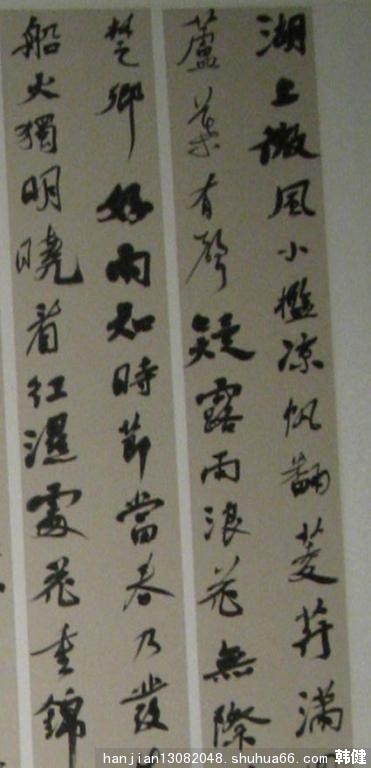 湖上微風小檻凉帆翻菱荇滿
蘆葉有聲疑露雨浪花無際
楚鄉好雨知時節當春乃發
船火獨明曉看紅濕處花重錦
hanjian13082048.shuhua66.com 韩健